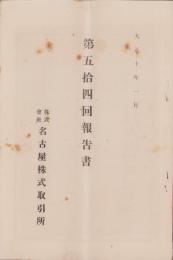 大正十年一月
第五拾四回報告書
株式会社名古屋株式取引所